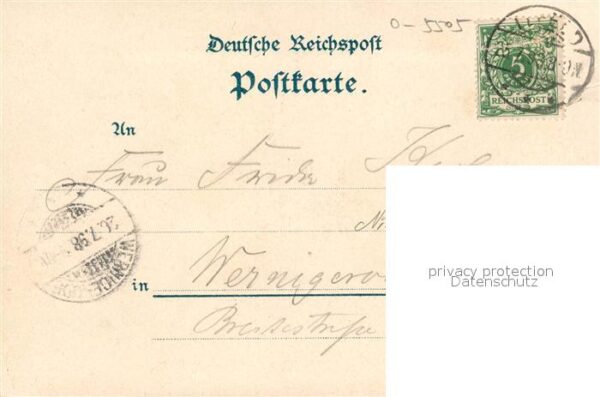 0-5505
Deutsche Reichspost
Postkarte.
5
REICHSPOST
An
Frau Frida
26.7.98
in Wernigero
Breitestraße
privacy protection
Datenschutz